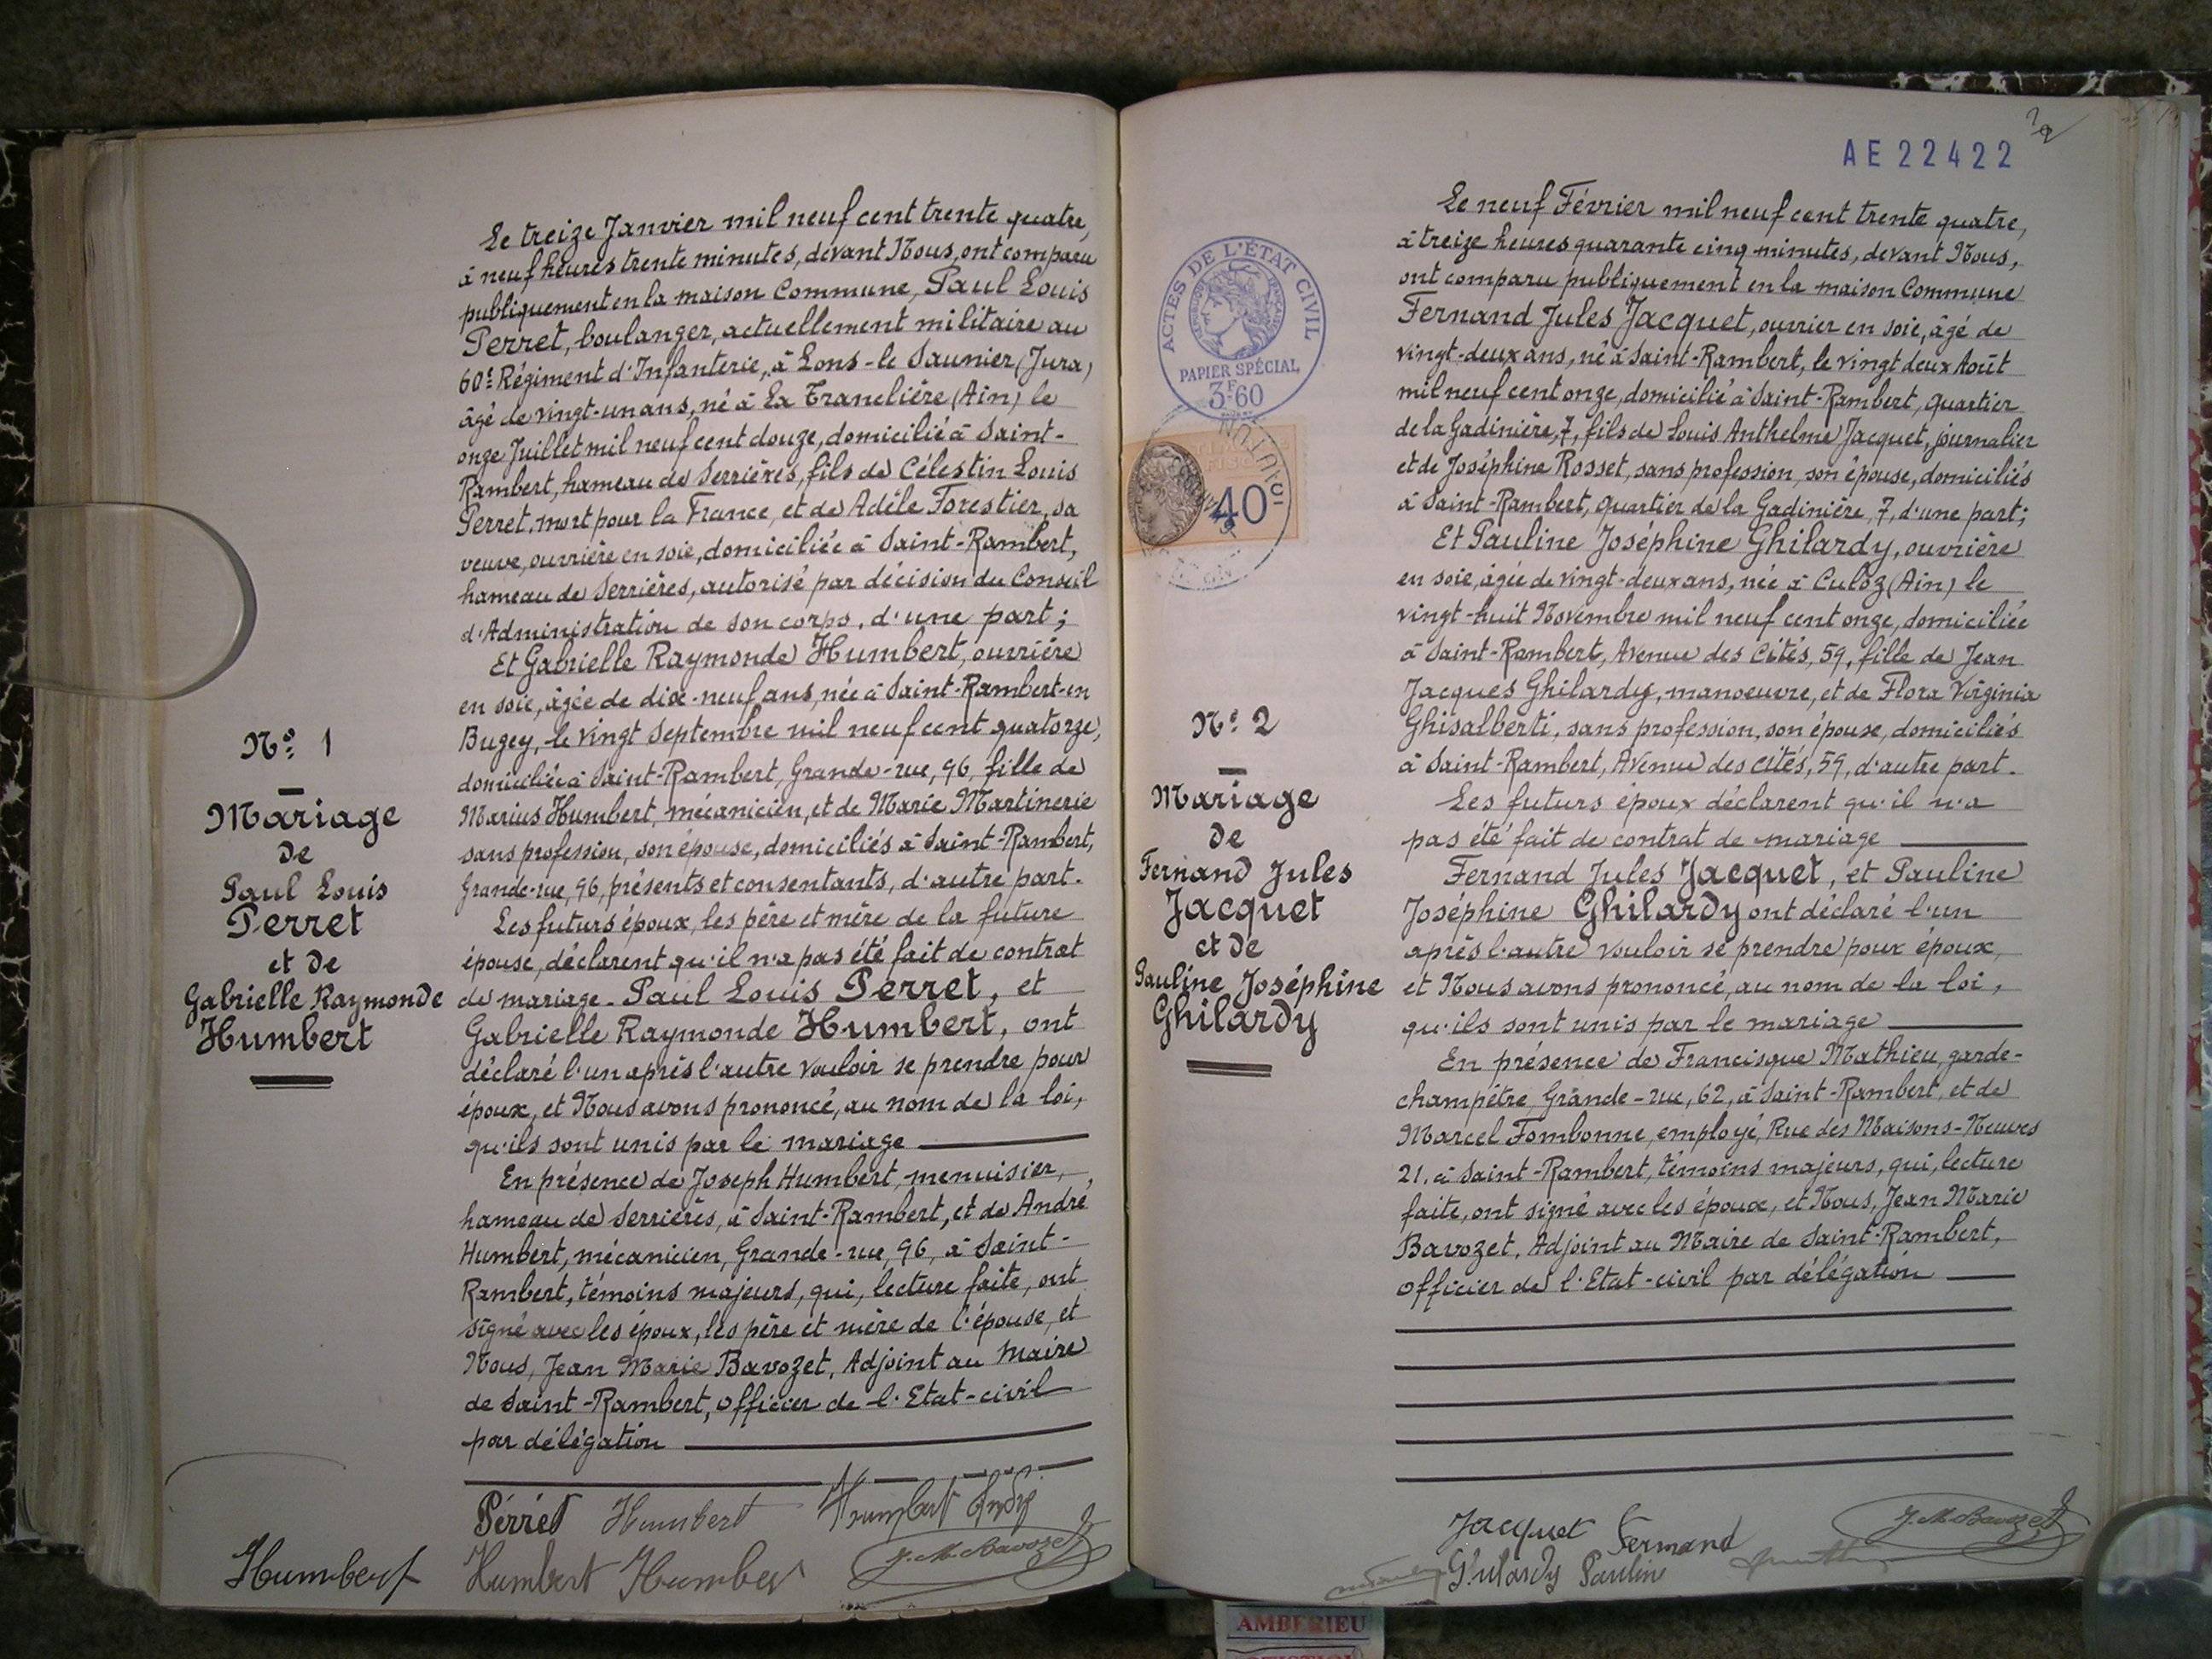 Nº 1
Mariage
de
Paul Louis
Perret
et de
Gabrielle Raymonde
Humbert
Le treize Janvier mil neuf cent trente quatre,
à neuf heures trente minutes, devant Nous, ont comparu
publiquement en la maison Commune, Paul Louis
Perret, boulanger, actuellement militaire au
60e Régiment d'Infanterie, à Lons-le Saunier (Jura)
âgé de vingt-un ans, né à La Tranclière (Ain) le
onze Juillet mil neuf cent douze, domicilié à Saint-
Rambert, hameau de Serrières, fils de Célestin Louis
Perret, mort pour la France, et de Adèle Forestier, sa
veuve, ouvrière en soie, domiciliée à Saint-Rambert,
hameau de Serrières, autorisé par décision du Conseil
d'Administration de son corps, d'une part;
Et Gabrielle Raymonde Humbert, ouvrière
en soie, âgée de dix-neuf ans, née à Saint-Rambert-en
Bugey, le vingt Septembre mil neuf cent quatorze,
domiciliée à Saint-Rambert, Grande-rue, 96, fille de
Marius Humbert, mécanicien, et de Marie Martinerie
sans profession, son épouse, domiciliés à Saint-Rambert,
Grande-rue, 96, présents et consentants, d'autre part.
Les futurs époux, les père et mère de la future
épouse, déclarent qu'il n'a pas été fait de contrat
de mariage - Paul Louis Perret, et
Gabrielle Raymonde Humbert, ont
déclaré l'un après l'autre vouloir se prendre pour
époux, et Nous avons prononcé, au nom de la loi,
qu'ils sont unis par le mariage
En présence de Joseph Humbert, menuisier,
hameau de Serrières, à Saint-Rambert, et de André
Humbert, mécanicien, Grande-rue, 96, à Saint-
Rambert, témoins majeurs, qui, lecture faite, ont
signé avec les époux, les père et mère de l'épouse, et
Nous, Jean Marie Bavozet, Adjoint au Maire
de Saint-Rambert, officier de l'Etat-civil
par délégation
Pérret Humbert Humbert André
Humbert Humbert Humbert J. M. Bavozet
AE 22422
2
ACTES DE L'ÉTAT CIVIL
RÉPUBLIQUE FRANÇAISE
PAPIER SPÉCIAL
3F60
40c
Nº 2
Mariage
de
Fernand Jules
Jacquet
et de
Pauline Joséphine
Ghilardy
Le neuf Février mil neuf cent trente quatre,
à treize heures quarante cinq minutes, devant Nous,
ont comparu publiquement en la maison Commune
Fernand Jules Jacquet, ouvrier en soie, âgé de
vingt-deux ans, né à Saint-Rambert, le vingt deux Août
mil neuf cent onze, domicilié à Saint-Rambert, quartier
de la Gadinière, 7, fils de Louis Anthelme Jacquet, journalier
et de Joséphine Rosset, sans profession, son épouse, domiciliés
à Saint-Rambert, quartier de la Gadinière, 7, d'une part;
Et Pauline Joséphine Ghilardy, ouvrière
en soie, âgée de vingt-deux ans, née à Culoz (Ain) le
vingt-huit Novembre mil neuf cent onze, domiciliée
à Saint-Rambert, Avenue des Cités, 59, fille de Jean
Jacques Ghilardy, manoeuvre, et de Flora Virginia
Ghisalberti, sans profession, son épouse, domiciliés
à Saint-Rambert, Avenue des cités, 59, d'autre part.
Les futurs époux déclarent qu'il n'a
pas été fait de contrat de mariage
Fernand Jules Jacquet, et Pauline
Joséphine Ghilardy ont déclaré l'un
après l'autre vouloir se prendre pour époux,
et Nous avons prononcé, au nom de la loi,
qu'ils sont unis par le mariage
En présence de Francisque Mathieu, garde-
champêtre, Grande-rue, 62, à Saint-Rambert, et de
Marcel Fombonne, employé, Rue des Maisons-Neuves
21, à Saint-Rambert, témoins majeurs, qui, lecture
faite, ont signé avec les époux, et Nous, Jean Marie
Bavozet, Adjoint au Maire de Saint-Rambert,
officier de l'Etat-civil par délégation
Jacquet Fernand J. M. Bavozet
Ghilardy Pauline
AMBERIEU